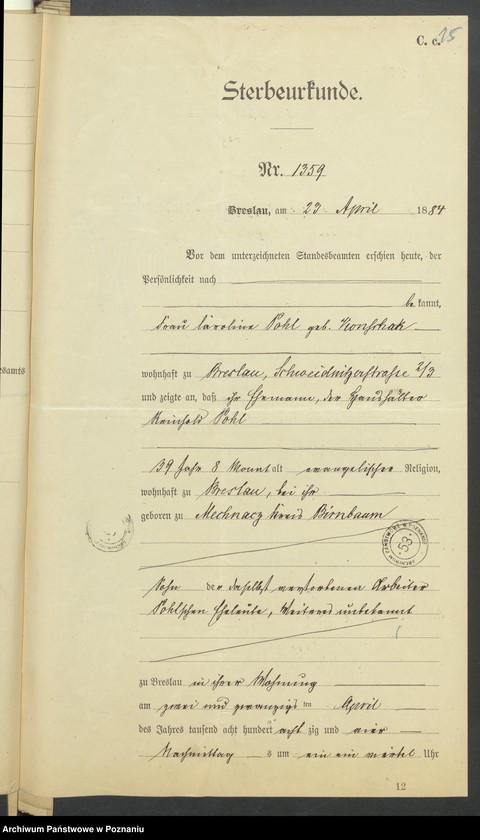 C. c. 15
Sterbeurkunde.
Nr. 1359
Breslau, am 23 April 1884
Vor dem unterzeichneten Standesbeamten erschien heute, der
Persönlichkeit nach
be kannt,
Frau Caroline Pohl geb.
wohnhaft zu Breslau, Schweidnitzerstrasse 2/3
und zeigte an, daß ihr Ehemann, der Haushälter
Reinhold Pohl
39 Jahr 8 Monat alt evangelischer Religion,
wohnhaft zu Breslau, bei ihr
geboren zu Mechnacz Kreis Birnbaum
53
Sohn der daselbst verstorbenen Arbeiter
Pohlschen Eheleute, Weiteres unbekannt
zu Breslau in ihrer Wohnung
am zwei und zwanzigs ten April
des Jahres tausend acht hundert acht zig und vier
Nachmittag s um ein ein viertel Uhr
12
Archiwum Państwowe w Poznaniu